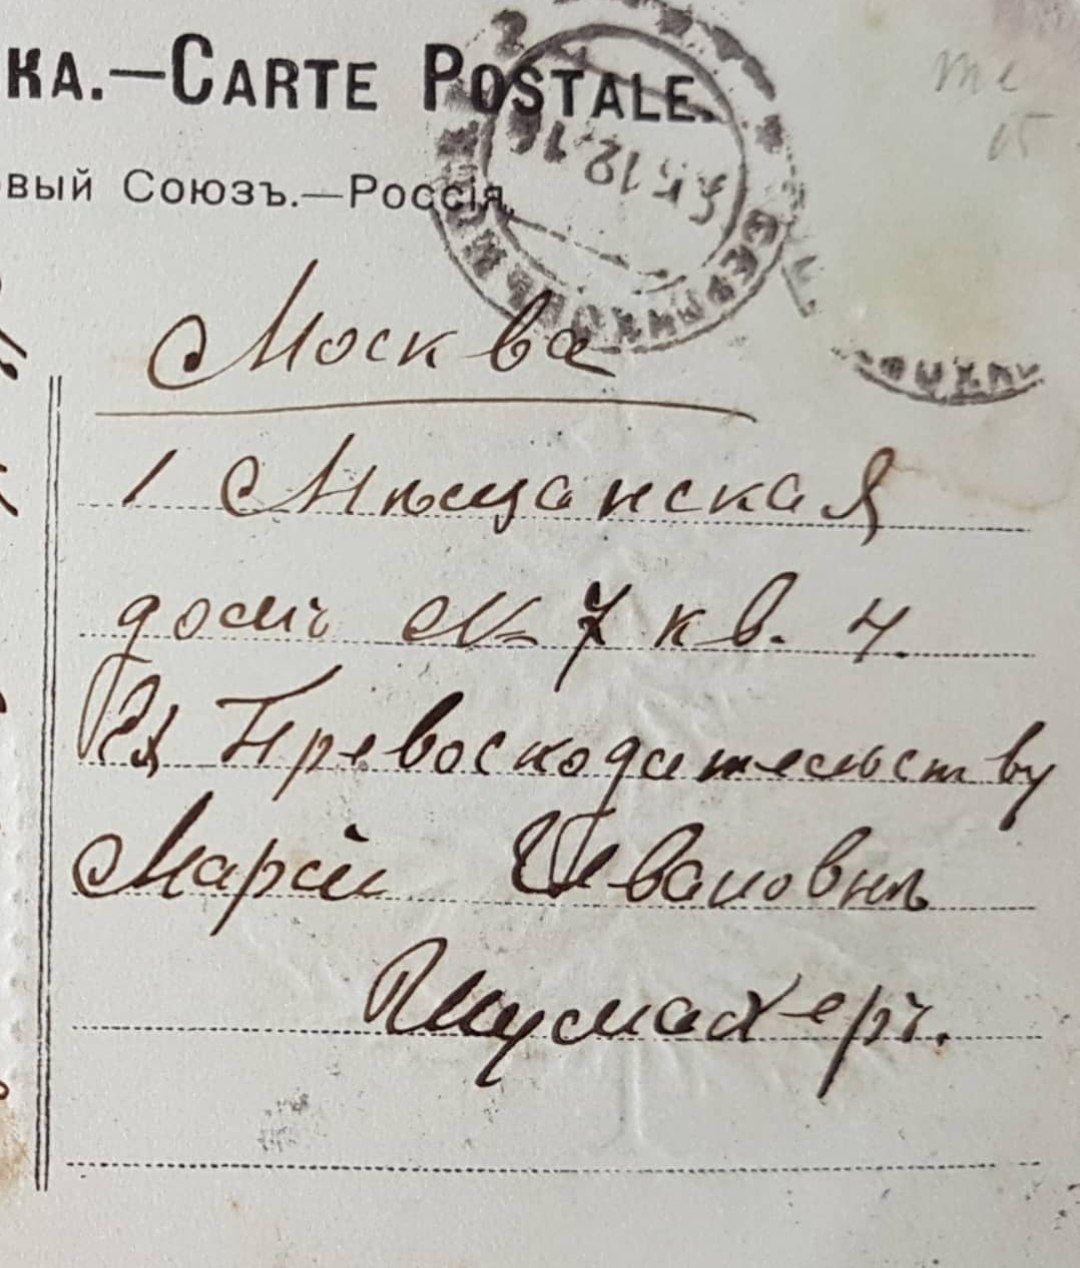 КА.—CARTE POSTALE.
овый Союзъ.—Россія.
Москва
1 Мѣщанская
домъ № 7 кв. 4.
Ея Превосходительству
Маріи Ивановнѣ
Шумахеръ.